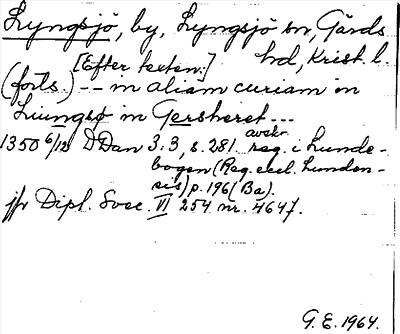 Lyngsjö, by, Lyngsjö sn, Gärds
hd, Krist. l.
[Efter texten:]
(forts.) -- in aliam curiam in
Liungsø in Gersheret ---
1350 6/12 DDan 3:3, s. 281 avskr.
reg. i Lunde-
bogen (Reg. eccl. Lunden-
sis) p. 196 (Ba).
jfr Dipl. Svec. VI 254 nr. 4647.
G. E. 1964.